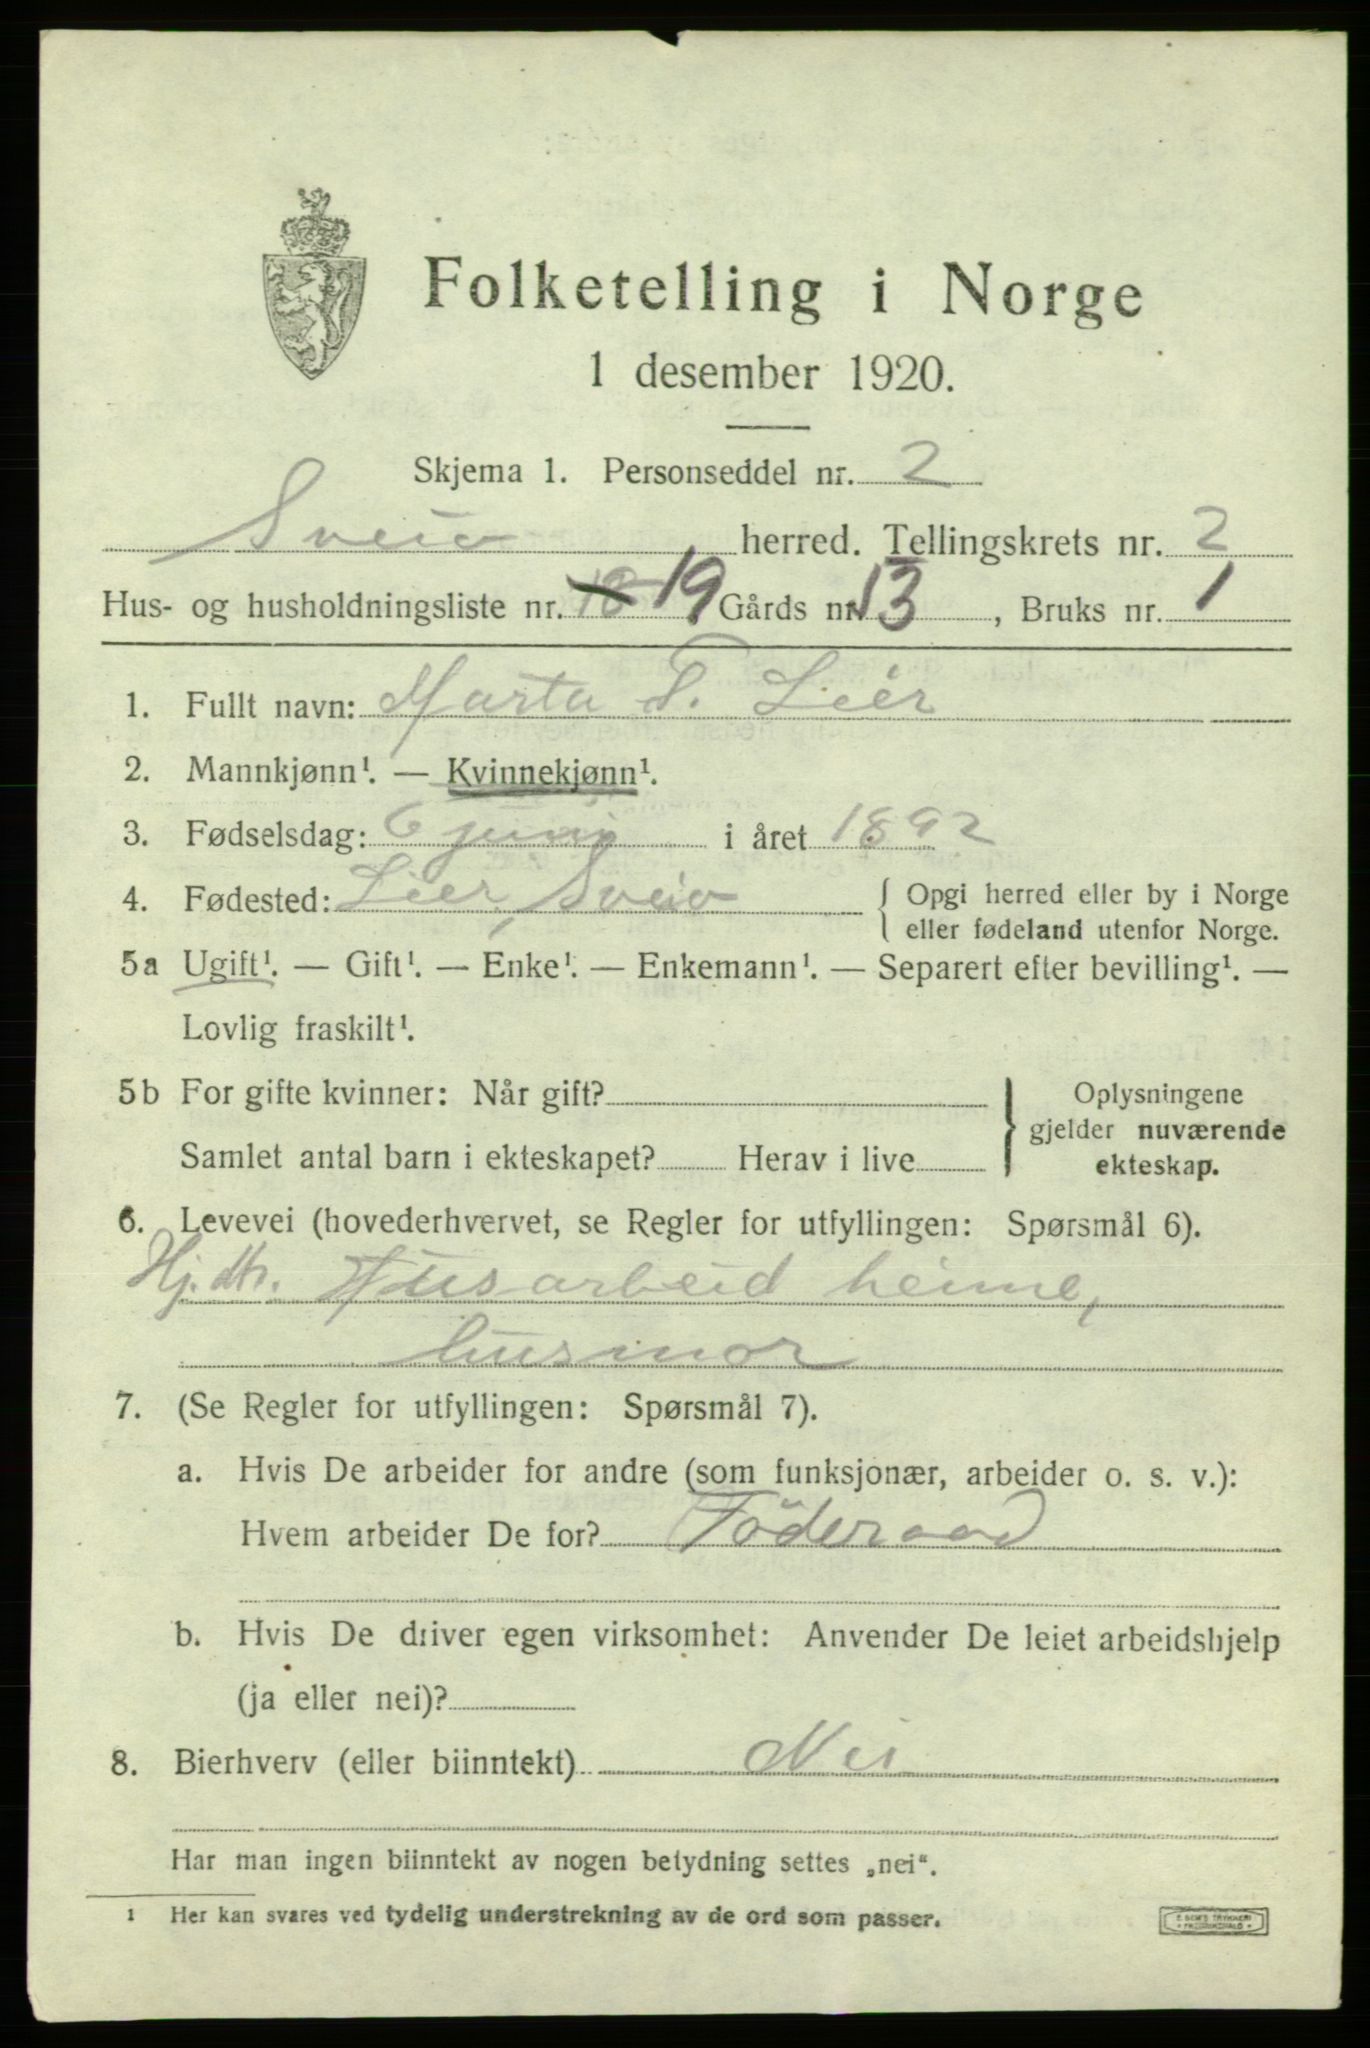 Folketelling i Norge
1 desember 1920.
Skjema 1. Personseddel nr. 2
Sveio herred. Tellingskrets nr. 2
Hus- og husholdningsliste nr. 18 19 Gårds nr. 13, Bruks nr. 1
1. Fullt navn: Marta T. Lier
2. Mannkjønn¹. — Kvinnekjønn¹.
3. Fødselsdag: 6 juni i året 1892
4. Fødested: Lier, Sveio { Opgi herred eller by i Norge
eller fødeland utenfor Norge.
5a Ugift¹. — Gift¹. — Enke¹. — Enkemann¹. — Separert efter bevilling¹. —
Lovlig fraskilt¹.
5b For gifte kvinner: Når gift?
Samlet antal barn i ekteskapet? Herav i live
} Oplysningene
gjelder nuværende
ekteskap.
6. Levevei (hovederhvervet, se Regler for utfyllingen: Spørsmål 6).
Hj. dtr. Husarbeid heime,
husmor
7. (Se Regler for utfyllingen: Spørsmål 7).
a. Hvis De arbeider for andre (som funksjonær, arbeider o. s. v.):
Hvem arbeider De for? Föderaad
b. Hvis De driver egen virksomhet: Anvender De leiet arbeidshjelp
(ja eller nei)?
8. Bierhverv (eller biinntekt) Nei
Har man ingen biinntekt av nogen betydning settes „nei“.
1 Her kan svares ved tydelig understrekning av de ord som passer.